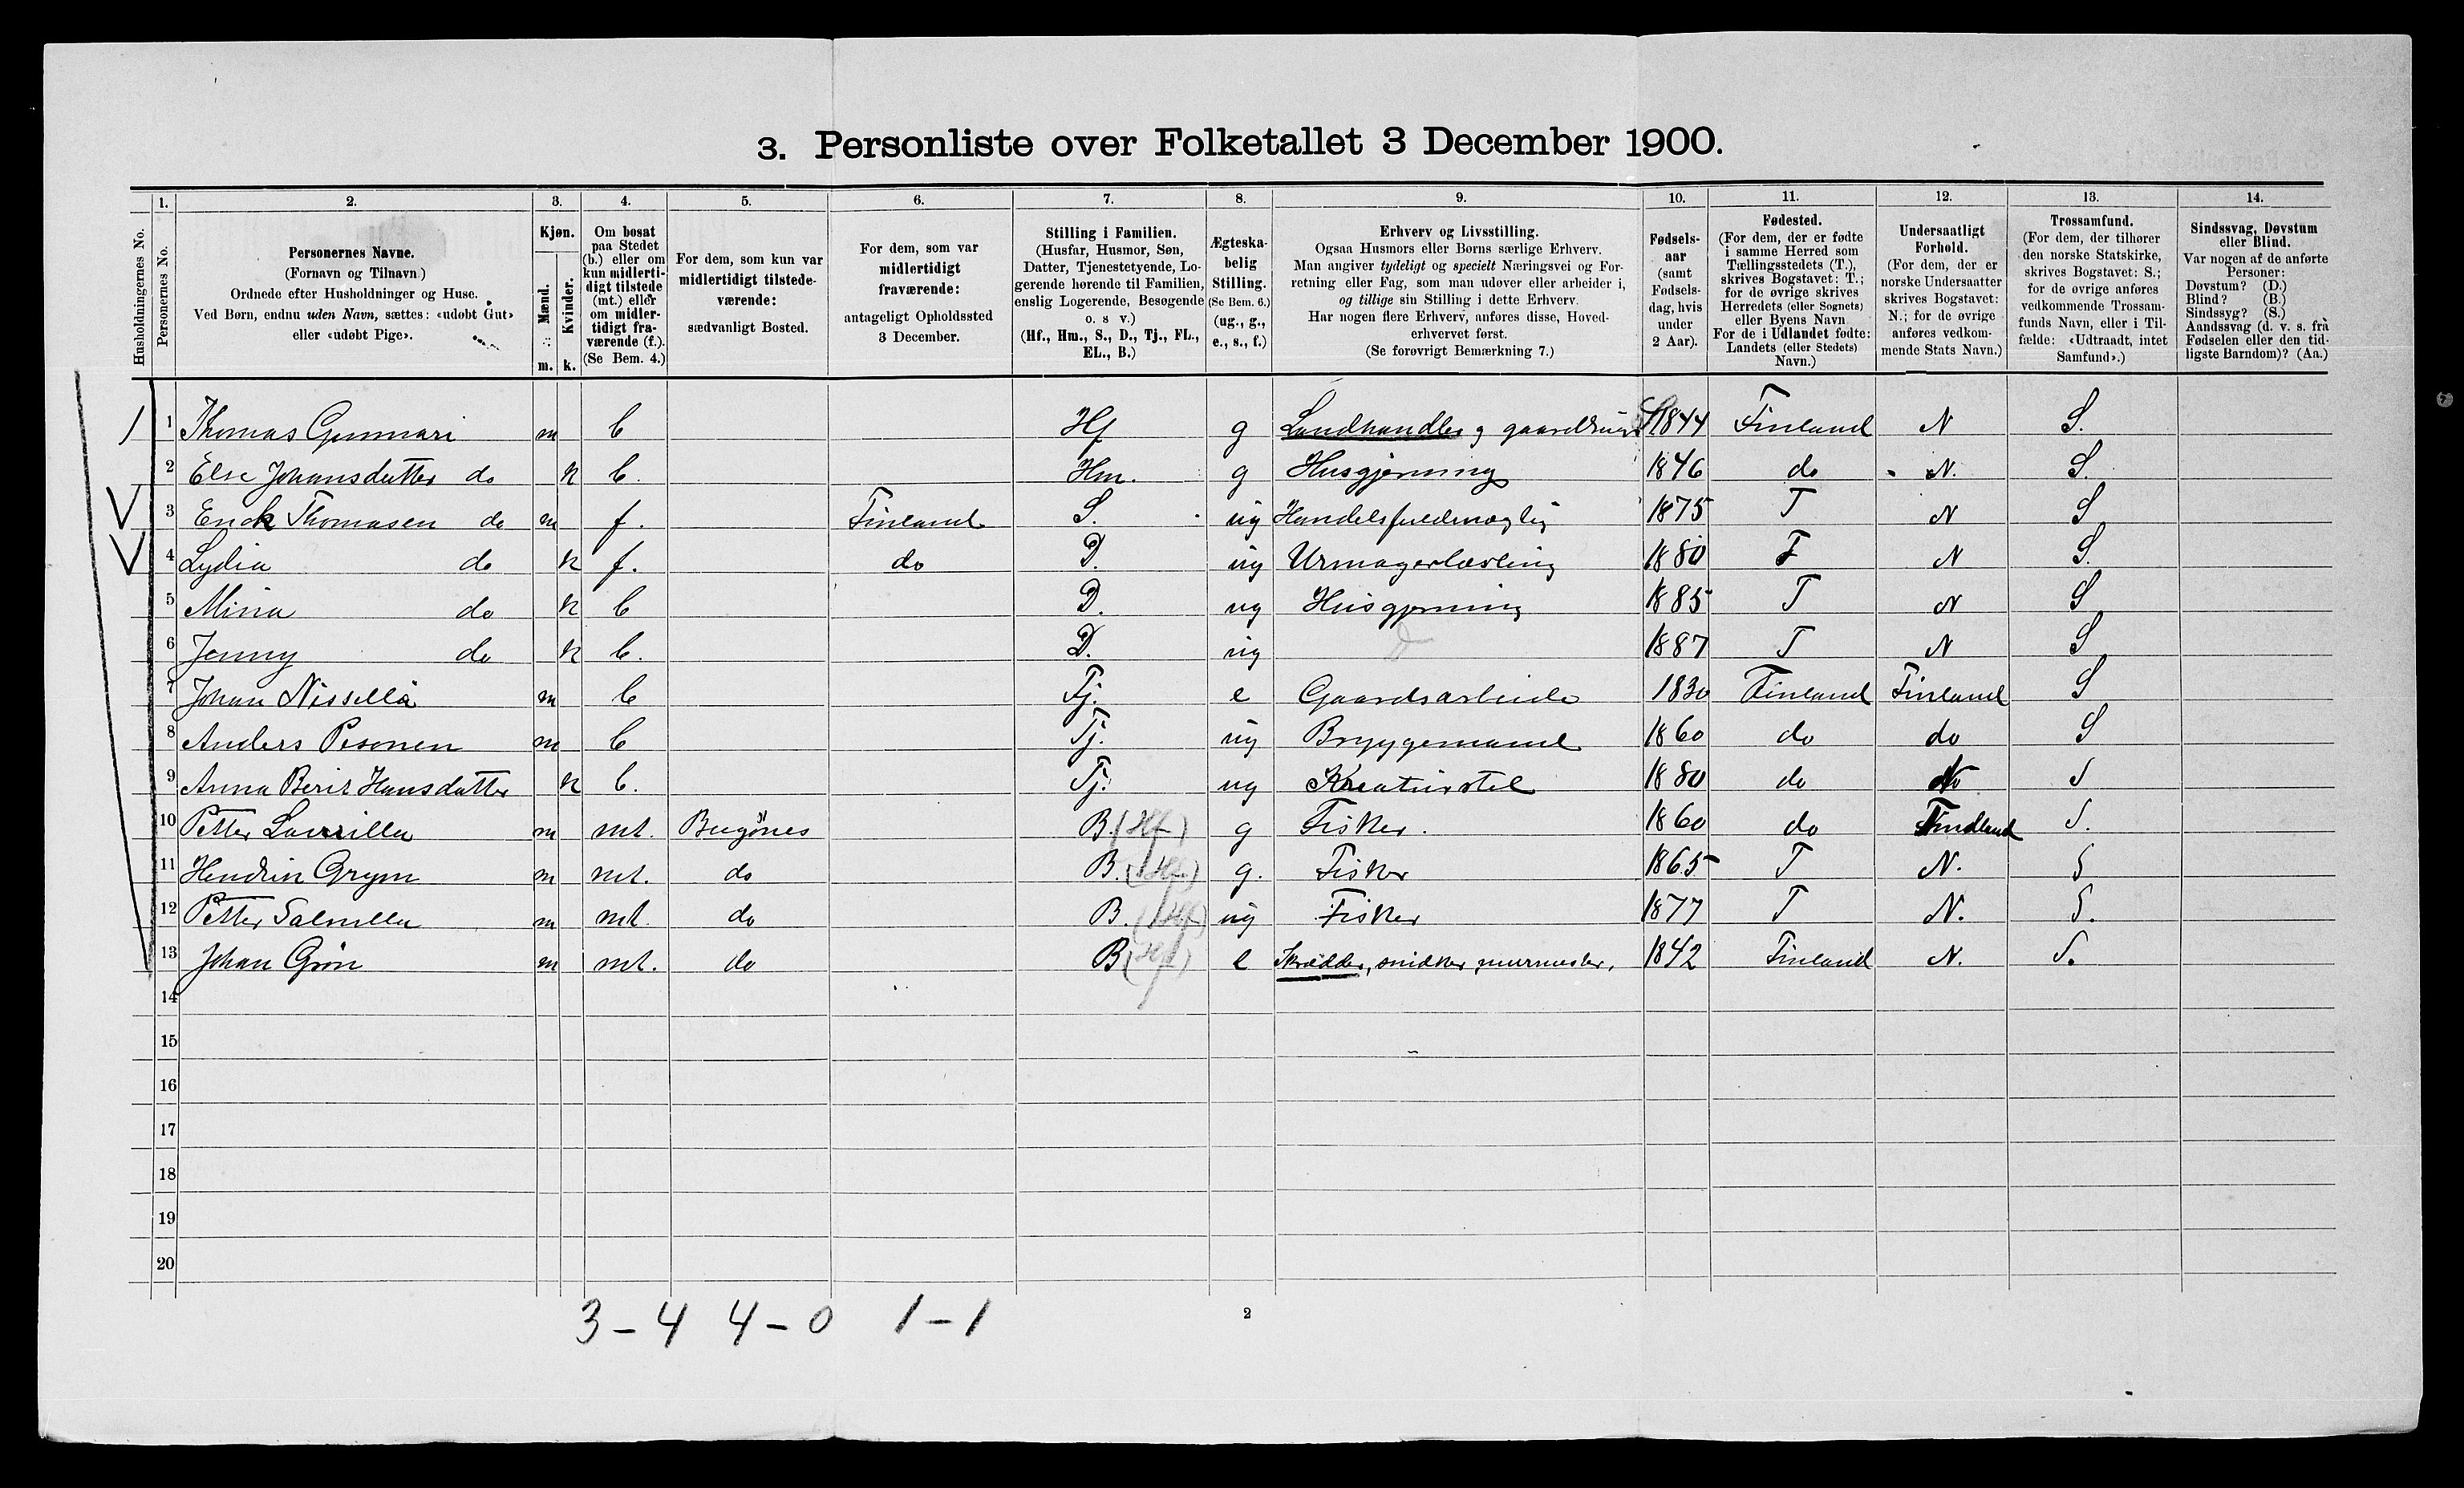 3. Personliste over Folketallet 3 December 1900.
1. 2. 3. 4. 5. 6. 7. 8. 9. 10. 11. 12. 13. 14.
Husholdningernes No.
Personernes No.
Personernes Navne.
(Fornavn og Tilnavn.)
Ordnede efter Husholdninger og Huse.
Ved Børn, endnu uden Navn, sættes: «udøbt Gut»
eller «udøbt Pige».
Kjøn.
Mænd.
Kvinder.
m. k.
Om bosat
paa Stedet
(b.) eller om
kun midlerti-
digt tilstede
(mt.) eller
om midler-
tidigt fra-
værende (f.).
(Se Bem. 4.)
For dem, som kun var
midlertidigt tilstede-
værende:
sædvanligt Bosted.
For dem, som var
midlertidigt
fraværende:
antageligt Opholdssted
3 December.
Stilling i Familien.
(Husfar, Husmor, Søn,
Datter, Tjenestetyende, Lo-
gerende hørende til Familien,
enslig Logerende, Besøgende
o. s v.)
(Hf., Hm., S., D., Tj., FL.,
EL., B.)
Ægteska-
belig
Stilling.
(Se Bem. 6.)
(ug., g.,
e., s., f.)
Erhverv og Livsstilling.
Ogsaa Husmors eller Børns særlige Erhverv.
Man angiver tydeligt og specielt Næringsvei og For-
retning eller Fag, som man udøver eller arbeider i,
og tillige sin Stilling i dette Erhverv.
Har nogen flere Erhverv, anføres disse, Hoved-
erhvervet først.
(Se forøvrigt Bemærkning 7.)
Fødsels-
aar
(samt
Fødsels-
dag, hvis
under
2 Aar).
Fødested.
(For dem, der er fødte
i samme Herred som
Tællingsstedets (T.),
skrives Bogstavet: T.;
for de øvrige skrives
Herredets (eller Sognets)
eller Byens Navn
For de i Udlandet fødte:
Landets (eller Stedets)
Navn.)
Undersaatligt
Forhold.
(For dem, der er
norske Undersaatter
skrives Bogstavet:
N.; for de øvrige
anføres vedkom-
mende Stats Navn.)
Trossamfund.
(For dem, der tilhører
den norske Statskirke,
skrives Bogstavet: S.;
for de øvrige anføres
vedkommende Trossam-
funds Navn, eller i Til-
fælde: «Udtraadt, intet
Samfund».)
Sindssvag, Døvstum
eller Blind.
Var nogen af de anførte
Personer:
Døvstum? (D.)
Blind? (B.)
Sindssyg? (S.)
Aandssvag (d. v. s. fra
Fødselen eller den tid-
ligste Barndom)? (Aa.)
1 Thomas Gunnari m b Hf g Landhandler g gaardbruger 1844 Finland N S.
2 Else Johansdatter do k b. Hm. g Husgjerning 1846 do N. S.
3 Erick Thomasen do m f. Finland S. ug Handelsfuldmægtig 1875 T N S
4 Lydia do k f. do D. ug Urmagerlærling 1880 T N S.
5 Mina do k b D. ug Husgjerning 1885 T N S
6 Jenny do k b. D. ug 1887 T N S
7 Johan Nissellä m b Tj. e Gaardsarbeide 1830 Finland Finland S
8 Anders Pesonen m b Tj. ug Bryggemand 1860 do do S
9 Anna Berit Hansdatter k b. Tj. ug Kreaturstel 1880 do S
10 Petter m mt. Bugönes B. (Hf) g Fisker. 1860 do Findland S.
11 Hendrik Grym m mt. do B. (Hf) g. Fisker 1865 T N. S
12 Petter Salmilla m mt. do B. (Hf) ug Fisker 1877 T N. S.
13 Johan Grön m mt. do B (Hf) e Skrædder, snidker, murmester. 1842 Finland N. S.
14
15
16
17
18
19
20
3 - 4 4 - 0 1 - 1
2